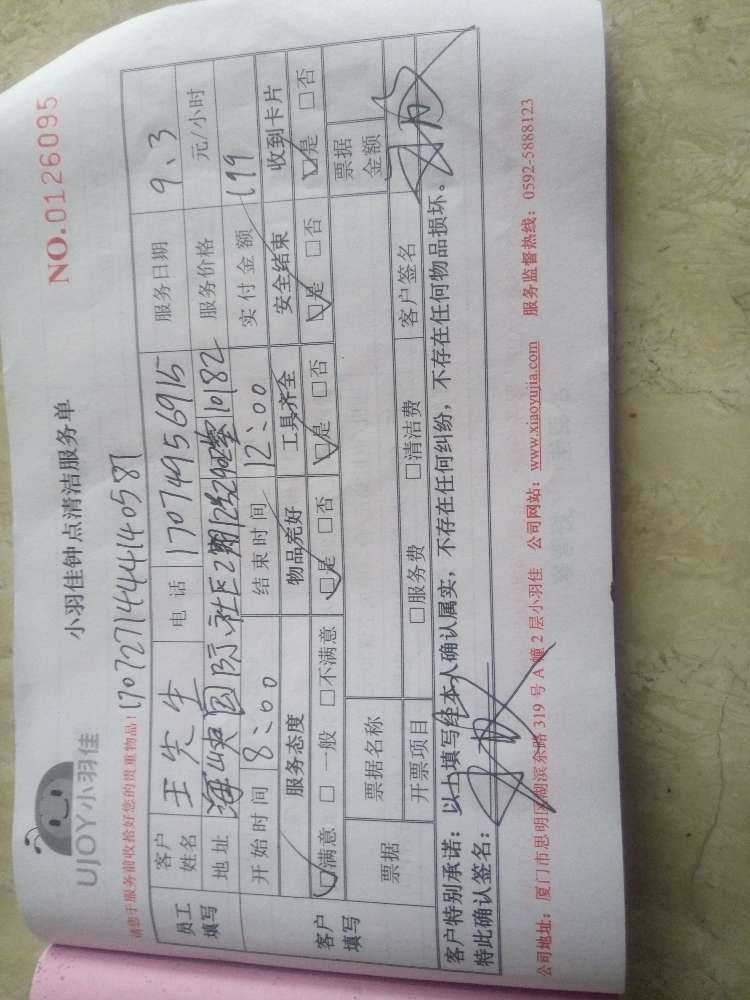 UJOY小羽佳
小羽佳钟点清洁服务单
NO.0126095
请您于服务前收拾好您的贵重物品!
17072714444140587
员工填写
客户姓名 王先生 电话 17074956915 服务日期 9、3
地址 海峡国际社区2期 服务价格 元/小时
开始时间 8:00 结束时间 12:00 实付金额 199
客户填写
服务态度 物品完好 工具齐全 安全结束 收到卡片
☑满意 □一般 □不满意 ☑是 □否 ☑是 □否 ☑是 □否 ☑是 □否
票据 票据名称 票据金额
开票项目 □服务费 □清洁费 客户签名
客户特别承诺:以上填写经本人确认属实,不存在任何纠纷,不存在任何物品损坏。
特此确认签名:
公司地址:厦门市思明区湖滨东路319号A幢2层小羽佳 公司网站:www.xiaoyujia.com 服务监督热线:0592-5888123